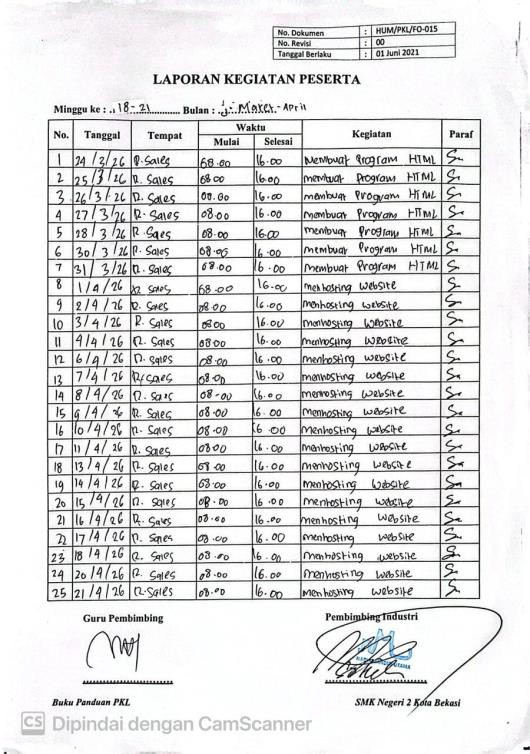 No. Dokumen : HUM/PKL/FO-015
No. Revisi : 00
Tanggal Berlaku : 01 Juni 2021
LAPORAN KEGIATAN PESERTA
Minggu ke : 18-21 Bulan : Maret - April
No. Tanggal Tempat Waktu Kegiatan Paraf
Mulai Selesai
1 24/3/26 R. Sales 08.00 16.00 Membuat Program HTML
2 25/3/26 R. Sales 08.00 16.00 membuat Program HTML
3 26/3/26 R. Sales 08.00 16.00 membuat Program HTML
4 27/3/26 R. Sales 08.00 16.00 Membuat Program HTML
5 28/3/26 R. Sales 08.00 16.00 membuat Program HTML
6 30/3/26 R. Sales 08.00 16.00 Membuat Program HTML
7 31/3/26 R. Sales 08.00 16.00 Membuat Program HTML
8 1/4/26 R. Sales 08.00 16.00 menhosting website
9 2/4/26 R. Sales 08.00 16.00 menhosting website
10 3/4/26 R. Sales 08.00 16.00 menhosting website
11 4/4/26 R. Sales 08.00 16.00 menhosting website
12 6/4/26 R. Sales 08.00 16.00 menhosting website
13 7/4/26 R. Sales 08.00 16.00 menhosting website
14 8/4/26 R. Sales 08.00 16.00 menhosting website
15 9/4/26 R. Sales 08.00 16.00 menhosting website
16 10/4/26 R. Sales 08.00 16.00 menhosting website
17 11/4/26 R. Sales 08.00 16.00 menhosting website
18 13/4/26 R. Sales 08.00 16.00 menhosting website
19 14/4/26 R. Sales 08.00 16.00 menhosting website
20 15/4/26 R. Sales 08.00 16.00 menhosting website
21 16/4/26 R. Sales 08.00 16.00 menhosting website
22 17/4/26 R. Sales 08.00 16.00 menhosting website
23 18/4/26 R. Sales 08.00 16.00 menhosting website
24 20/4/26 R. Sales 08.00 16.00 menhosting website
25 21/4/26 R. Sales 08.00 16.00 menhosting website
Guru Pembimbing Pembimbing Industri
Buku Panduan PKL SMK Negeri 2 Kota Bekasi
CS Dipindai dengan CamScanner